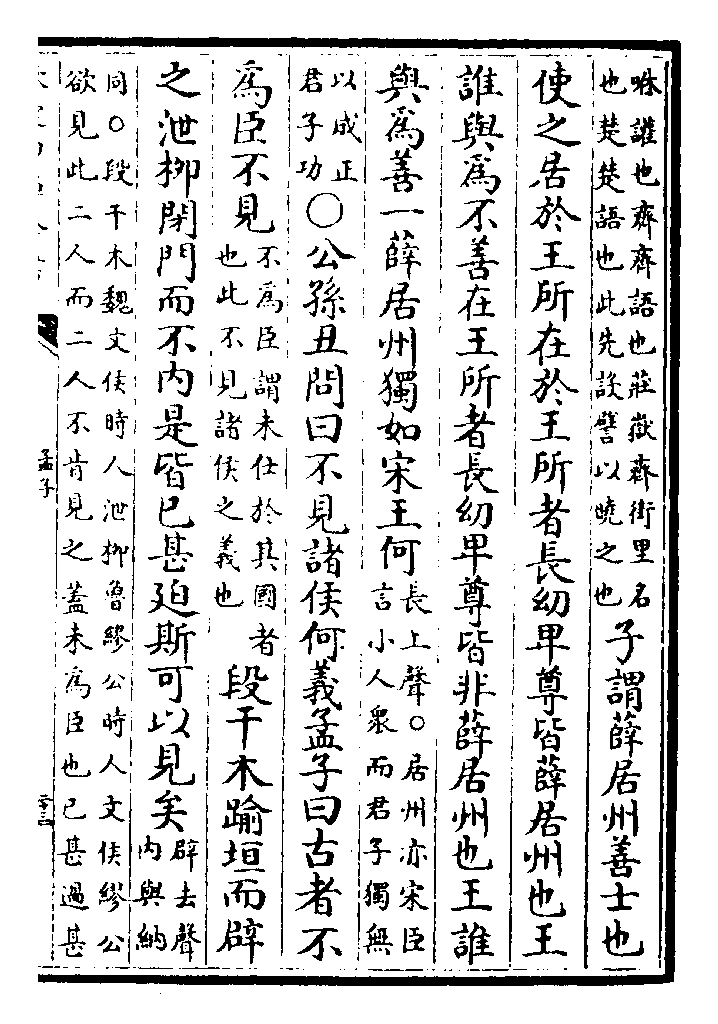 咻讙也齊齊語也莊嶽齊街里名也楚楚語也此先設譬以曉之也子謂薛居州善士也
使之居於王所在於王所者長幼卑尊皆薛居州也王
誰與爲不善在王所者長幼卑尊皆非薛居州也王誰
與爲善一薛居州獨如宋王何長上聲○居州亦宋臣言小人衆而君子獨無
以成正君子功○公孫丑問曰不見諸侯何義孟子曰古者不
爲臣不見不爲臣謂未仕於其國者也此不見諸侯之義也段干木踰垣而辟
之泄柳閉門而不内是皆已甚迫斯可以見矣辟去聲内與納
同○段干木魏文侯時人泄柳魯繆公時人文侯繆公欲見此二人而二人不肯見之蓋未爲臣也已甚過甚
孟子